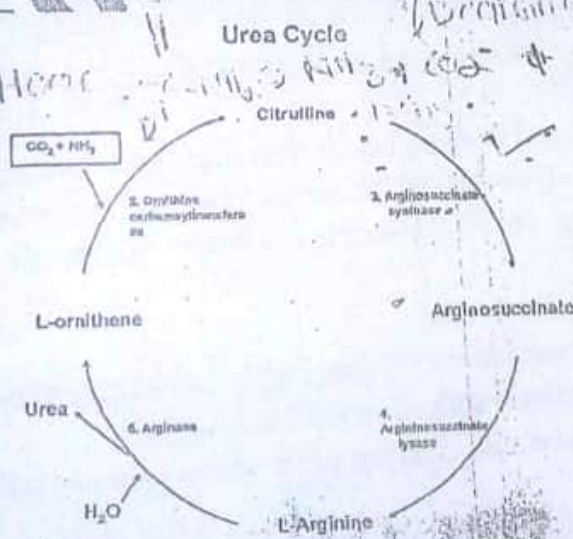 Urea Cycle
Citrulline
CO₂ + NH₃
2. Ornithine
carbamoyltransfera
se
3. Arginosuccinate
synthase
L-ornithene
Arginosuccinate
Urea
5. Arginase
4.
Argininosuccinate
lysase
H₂O
L-Arginine